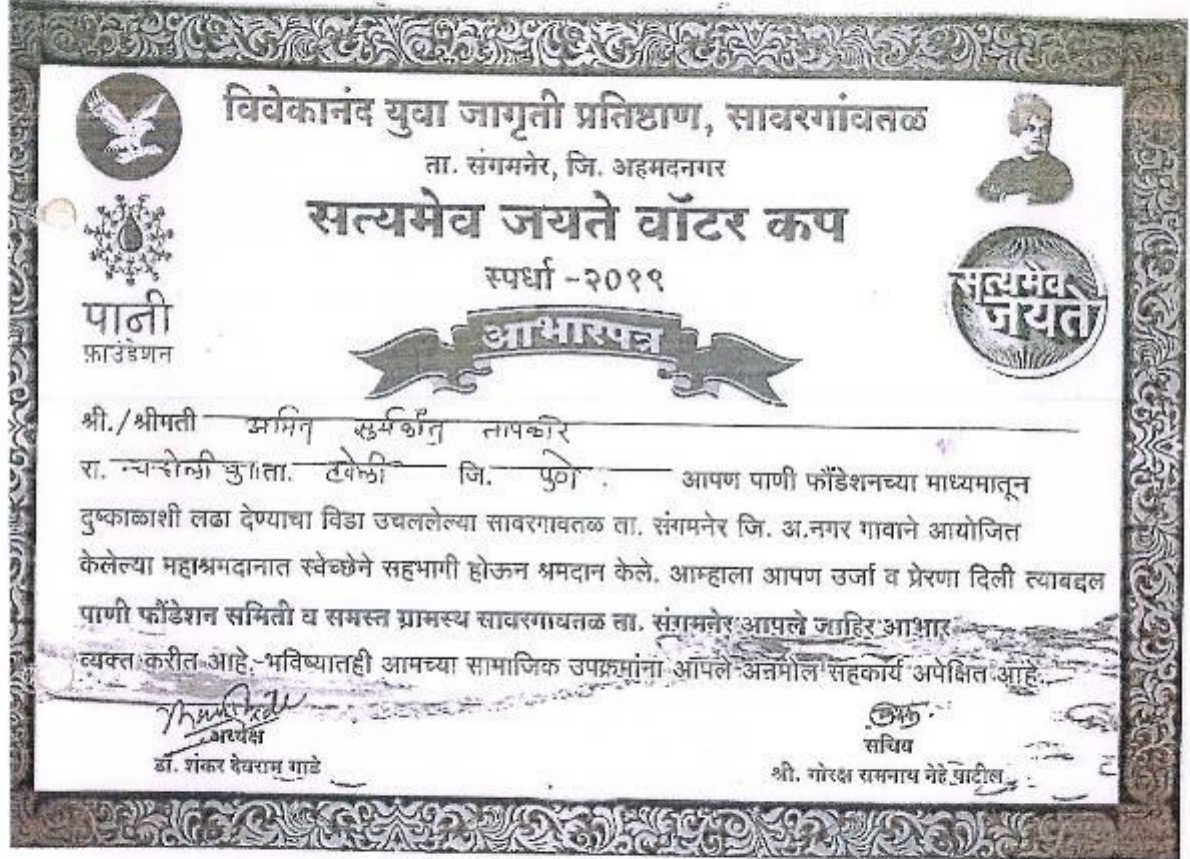 विवेकानंद युवा जागृती प्रतिष्ठाण, सावरगांवतळ
ता. संगमनेर, जि. अहमदनगर
सत्यमेव जयते वॉटर कप
स्पर्धा -२०१९
पानी
फ़ाउंडेशन
सत्यमेव
जयते
आभारपत्र
श्री./श्रीमती अमित सुर्यकांत तापकीर
रा. ता. हवेली जि. पुणे. आपण पाणी फौंडेशनच्या माध्यमातून
दुष्काळाशी लढा देण्याचा विडा उचललेल्या सावरगावतळ ता. संगमनेर जि. अ.नगर गावाने आयोजित
केलेल्या महाश्रमदानात स्वेच्छेने सहभागी होऊन श्रमदान केले. आम्हाला आपण उर्जा व प्रेरणा दिली त्याबद्दल
पाणी फौंडेशन समिती व समस्त ग्रामस्थ सावरगावतळ ता. संगमनेर आपले जाहिर आभार
व्यक्त करीत आहे. भविष्यातही आमच्या सामाजिक उपक्रमांना आपले अनमोल सहकार्य अपेक्षित आहे.
अध्यक्ष
डॉ. शंकर देवराम गाडे
सचिव
श्री. गोरक्ष रामनाथ नेहे पाटील